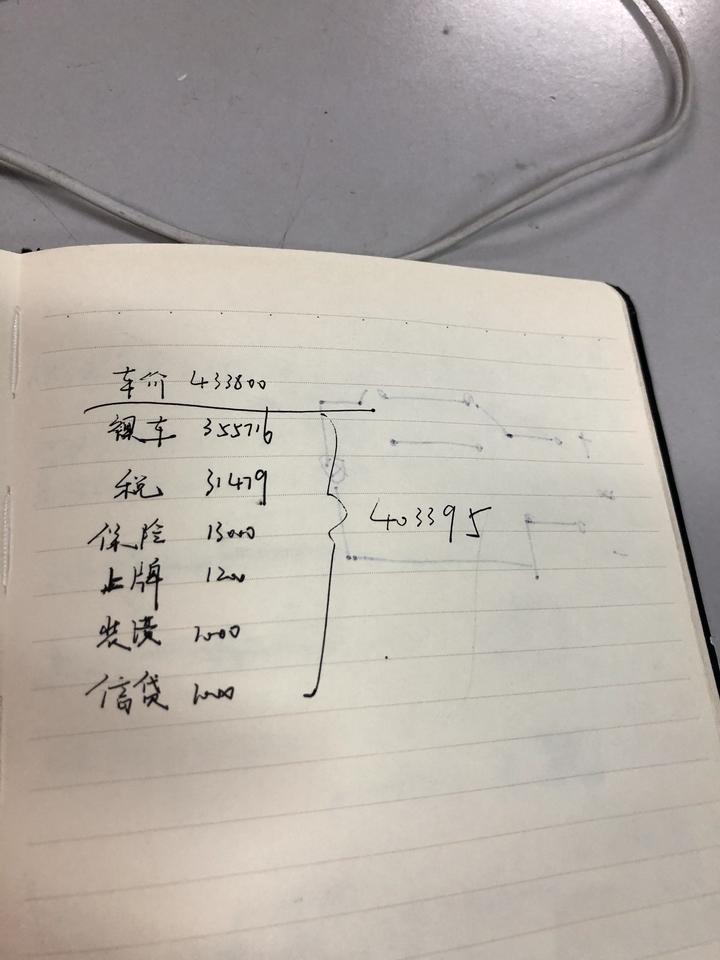 车价 433800
裸车 355716
税 31479
保险 13000
上牌 1200
装潢 1000
信贷 1000
403395